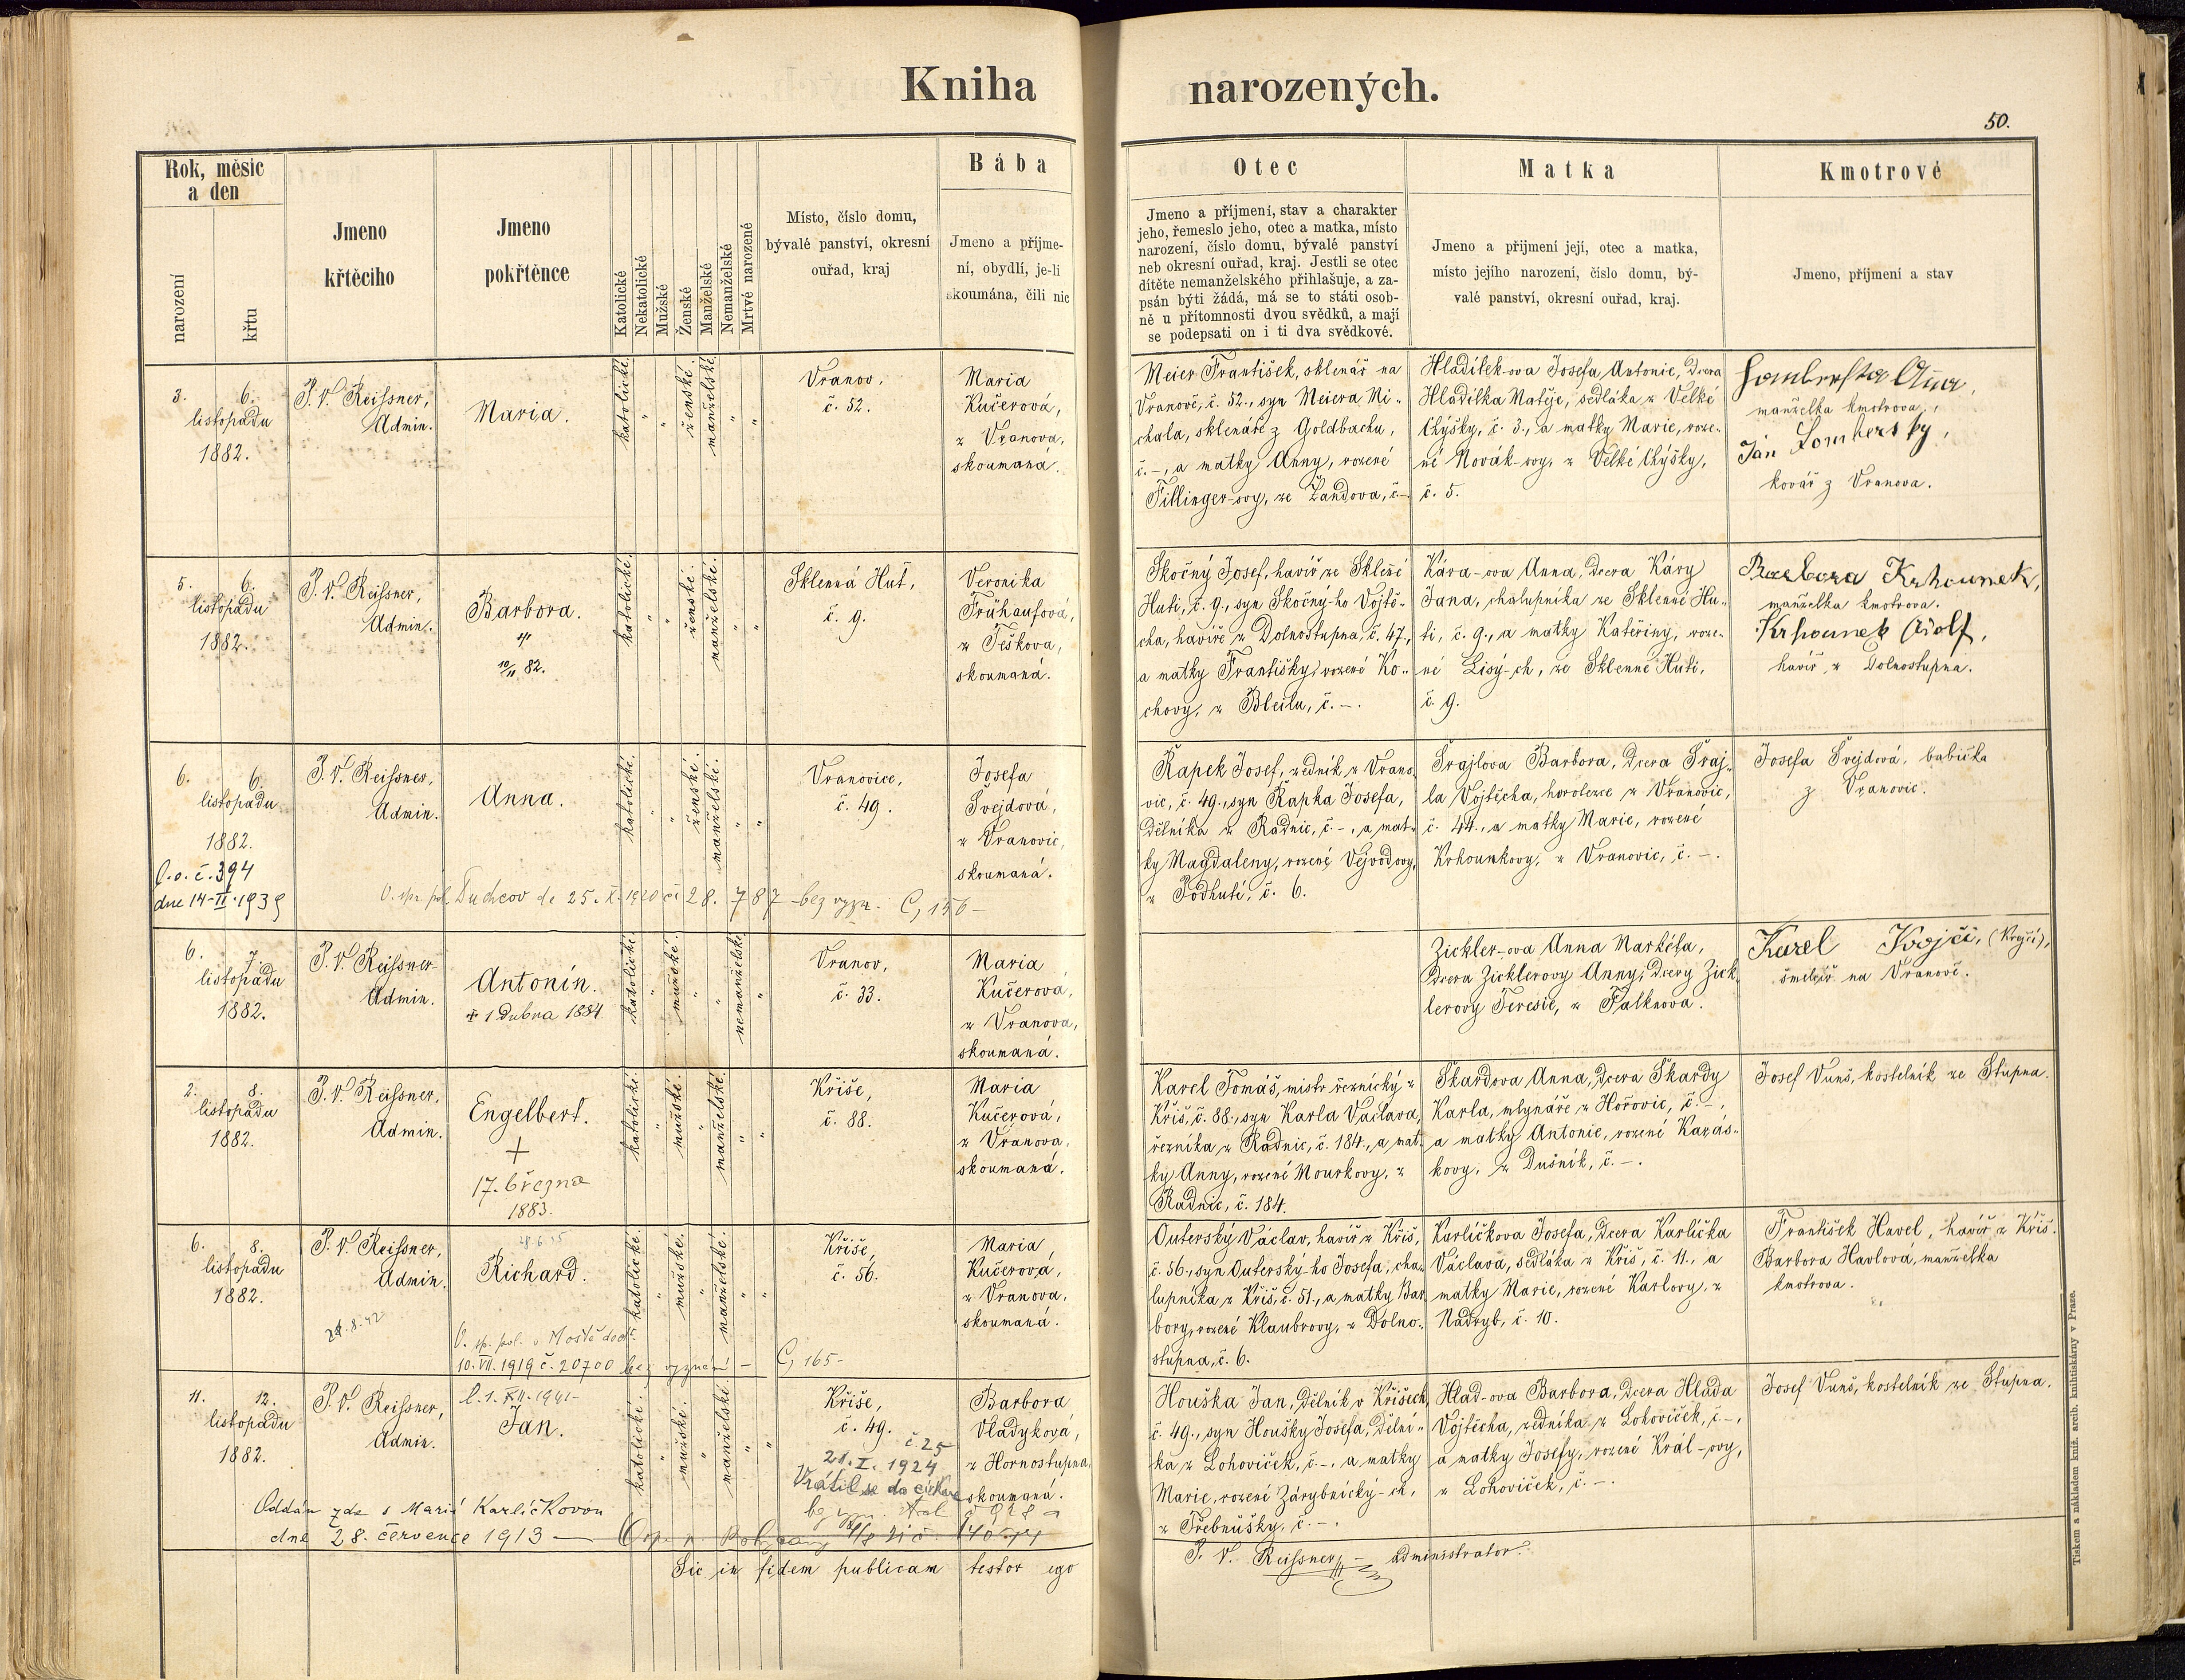 Kniha narozených.
50.
Rok, měsic
a den
narození
křtu
Jmeno
křtěciho
Jmeno
pokřtěnce
Katolické
Nekatolické
Mužské
Ženské
Manželské
Nemanželské
Mrtvé narozené
Místo, číslo domu,
bývalé panství, okresní
ouřad, kraj
Bába
Jmeno a příjme-
ní, obydlí, je-li
skoumána, čili nic
Otec
Jmeno a příjmení, stav a charakter
jeho, řemeslo jeho, otec a matka, místo
narození, číslo domu, bývalé panství
neb okresní ouřad, kraj. Jestli se otec
dítěte nemanželského přihlašuje, a za-
psán býti žádá, má se to státi osob-
ně u přítomnosti dvou svědků, a mají
se podepsati on i ti dva svědkové.
Matka
Jmeno a přijmení její, otec a matka,
místo jejího narození, číslo domu, bý-
valé panství, okresní ouřad, kraj.
Kmotrové
Jmeno, příjmení a stav
3. 6.
listopadu
1882.
P. V. Reissner,
Admin.
Maria.
katolické.
ženské.
manželské
Vranov,
č. 52.
Maria
Kučerová,
z Vranova,
skoumaná.
Meier František, sklenář na
Vranově, č. 52., syn Meiera Mi-
chala, sklenáře z Goldbachu,
č. –, a matky Anny, rozené
Fillinger-ovy, ze Žandova, č.–
Hladílek-ova Josefa Antonie, dcera
Hladílka Matěje, sedláka z Velké
Chýšky, č. 3., a matky Marie, roze-
né Novák-ovy, z Velké Chýšky,
č. 5.
Anna,
manželka kmotrova.,
Jan Lombersky,
kovář z Vranova.
5. 6.
listopadu
1882.
P. V. Reissner,
Admin.
Barbora.
10/11 82.
katolické.
ženské.
manželské.
Sklenná Huť,
č. 9.
Veronika
Frühaufová,
z Těškova,
skoumaná.
Skočný Josef, havíř ze Skleňé
Huti, č. 9., syn Skočný-ho Vojtě-
cha, havíře z Dolnostupna, č. 47.,
a matky Františky, rozené Ko-
chovy, z Bleilu, č. –.
Kára-ova Anna, dcera Káry
Jana, chalupníka ze Sklenné Hu-
ti, č. 9., a matky Kateřiny, roze-
né Lisý-ch, ze Sklenné Huti,
č. 9.
Barbora Krhounek,
manželka kmotrova.
Krhounek Adolf,
havíř, z Dolnostupna.
6. 6.
listopadu
1882.
O. o. č. 394
dne 14-II-1939
P. V. Reissner,
Admin.
Anna.
katolické.
ženské.
manželské.
Vranovice,
č. 49.
Josefa
Švejdová,
z Vranovic,
skoumaná.
O. sp. pol. Duchcov de 25. X. 1920 či 28. 787 – bez vyzn. C, 156 –
Řapek Josef, zedník z Vrano-
vic, č. 49., syn Řapka Josefa,
dělníka z Radnic, č. –, a mat-
ky Magdaleny, rozené Vejvodovy,
z Podhutí, č. 6.
Šrajlova Barbora, dcera Šraj-
la Vojtěcha, horolezce z Vranovic,
č. 44., a matky Marie, rozené
Krhounkovy, z Vranovic, č. –.
Josefa Švejdová, babička
z Vranovic.
6. 7.
listopadu
1882.
P. V. Reissner
Admin.
Antonín.
+ 1. dubna 1884.
katolické.
mužské.
nemanželské
Vranov,
č. 33.
Maria
Kučerová,
z Vranova,
skoumaná.
Zickler-ova Anna Markéta,
dcera Zicklerovy Anny, dcery Zick-
lerovy Teresie, z Falknova.
Karel Krojčí, (Krejčí),
na Vranově.
2. 8.
listopadu
1882.
P. V. Reissner,
Admin.
Engelbert.
+
17. března
1883.
katolické.
mužské.
manželské.
Kříše,
č. 88.
Maria
Kučerová,
z Vranova,
skoumaná.
Karel Tomáš, mistr řeznický z
Kříš, č. 88., syn Karla Václava,
řezníka z Radnic, č. 184., a mat-
ky Anny, rozené Mourkovy, z
Radnic, č. 184.
Škardova Anna, dcera Škardy
Karla, mlynáře z Hořovic, č. –,
a matky Antonie, rozené Karás-
kovy, z Dušník, č. –.
Josef Vuns, kostelník ze Stupna.
6. 8.
listopadu
1882.
P. V. Reissner,
Admin.
Richard.
katolické.
mužské.
manželské.
Kříše,
č. 56.
Maria
Kučerová,
z Vranova,
skoumaná.
O. sp. pol. v Mostě dod.
10. VII. 1919 č. 20700 bez vyznání – C, 165 –
Outerský Václav, havíř z Kříš,
č. 56., syn Outerský-ho Josefa, cha-
lupníka z Kříš, č. 51., a matky Bar-
bory, rozené Klaubrovy, z Dolno-
stupna, č. 6.
Karlíčkova Josefa, dcera Karlíčka
Václava, sedláka z Kříš, č. 11., a
matky Marie, rozené Karlovy, z
Nadryb, č. 10.
František Havel, havíř z Kříš.
Barbora Havlová, manželka
kmotrova.
11. 12.
listopadu
1882.
P. V. Reissner,
Admin.
Jan.
katolické.
mužské.
manželské.
Kříše,
č. 49.
č 25
21. I. 1924
Vrátil se do církve
Barbora
Vladyková,
z Hornostupna,
skoumaná.
Oddán zde s Marií Karlíčkovou
dne 28. července 1913 –
Houška Jan, dělník v Kříších,
č. 49., syn Houšky Josefa, dělní-
ka z Lohoviček, č. –, a matky
Marie, rozené Zárybnický-ch,
z Třebnušky, č. –.
Hlad-ova Barbora, dcera Hlada
Vojtěcha, zedníka z Lohoviček, č. –,
a matky Josefy, rozené Král-ovy,
z Lohoviček, č. –.
Josef Vuns, kostelník ze Stupna.
Sic in fidem publicam testor ego
P. V. Reissner, – administrator.
Tiskem a nákladem kníž. arcib. knihtiskárny v Praze.